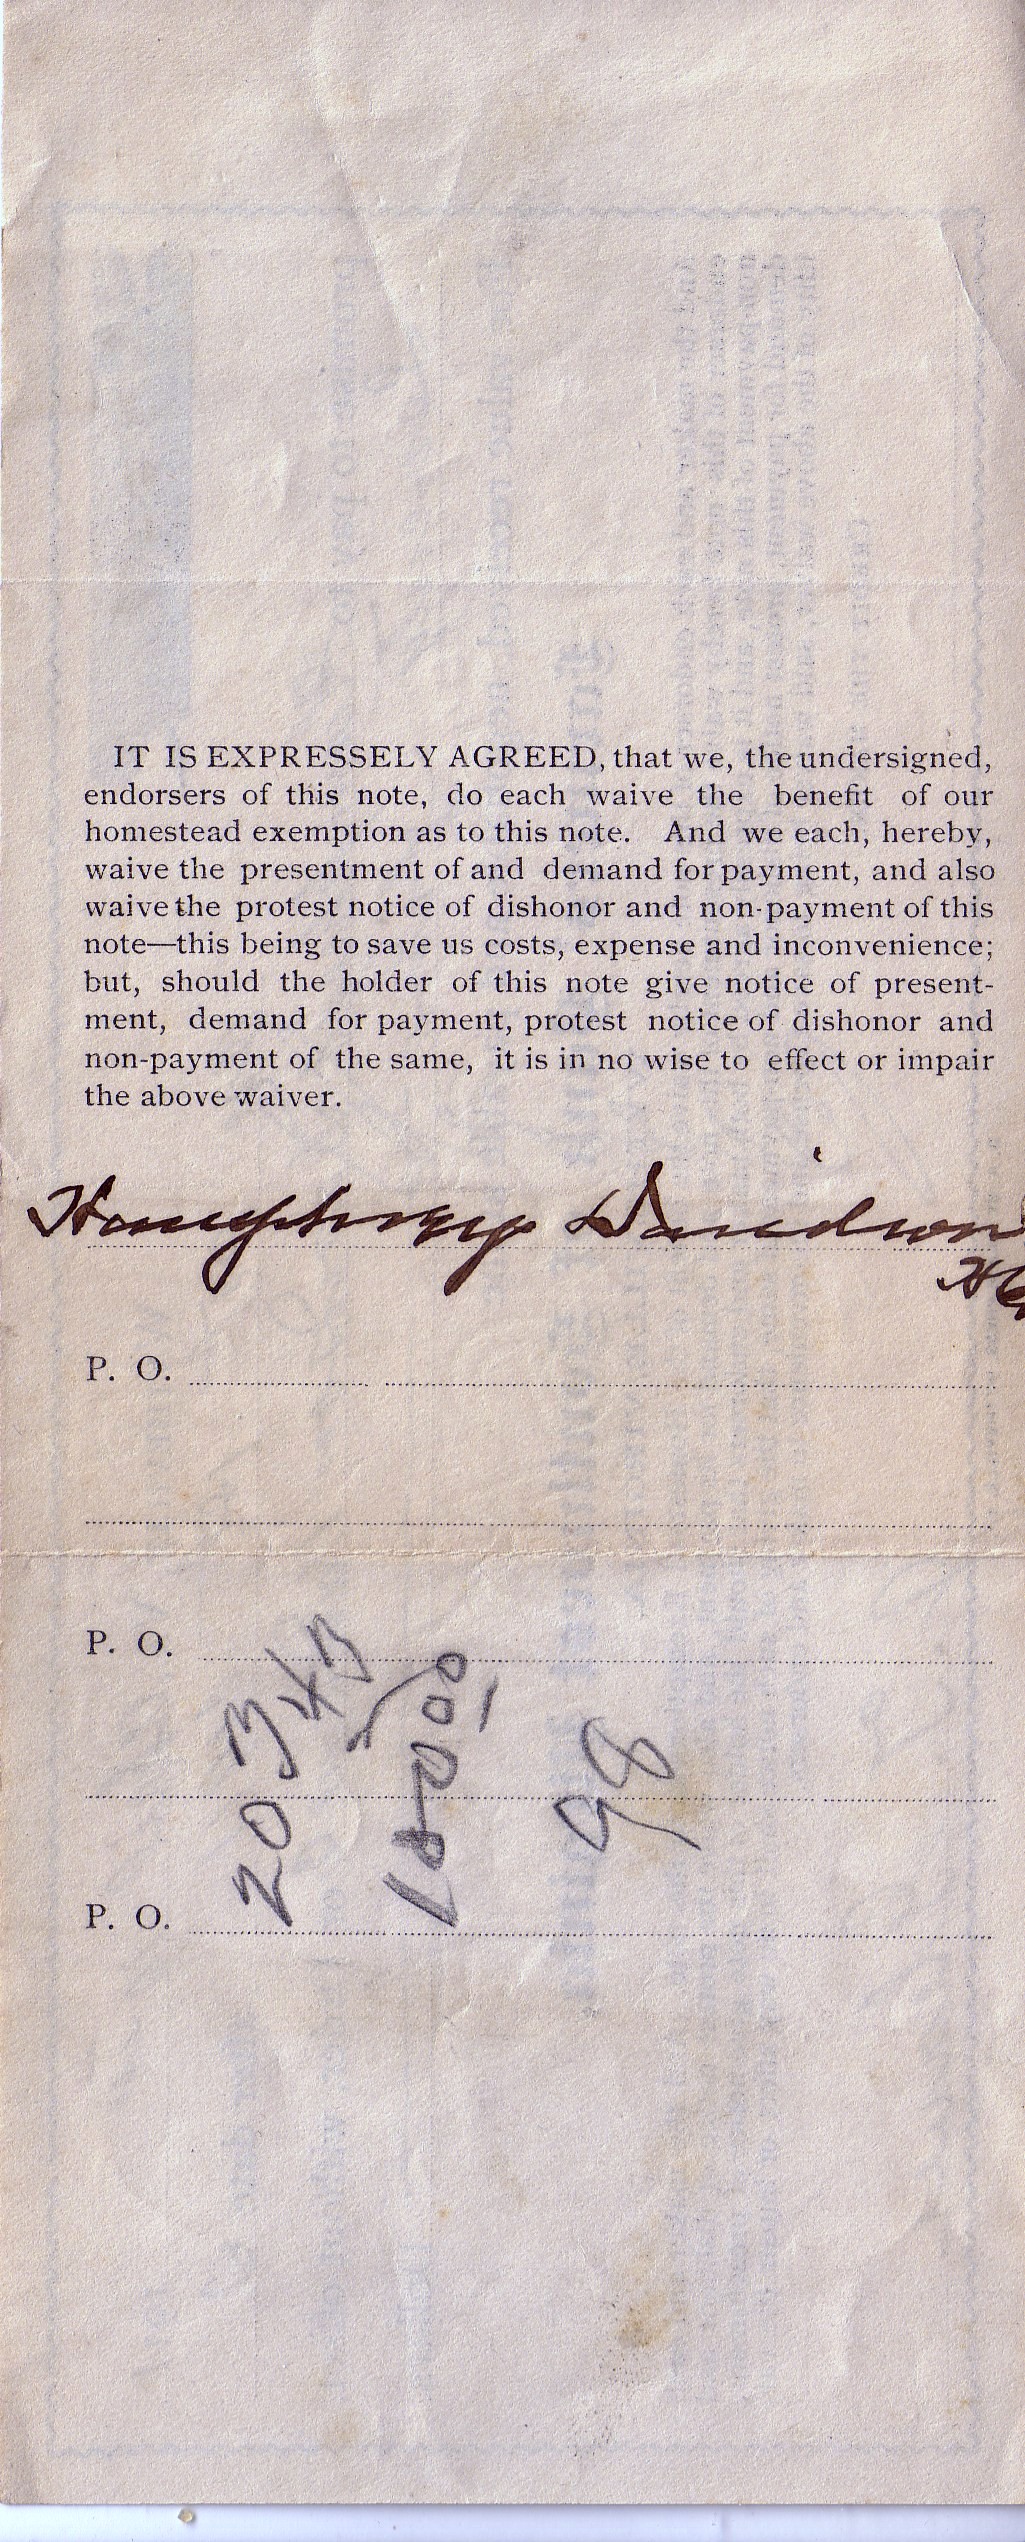 IT IS EXPRESSELY AGREED, that we, the undersigned,
endorsers of this note, do each waive the benefit of our
homestead exemption as to this note. And we each, hereby,
waive the presentment of and demand for payment, and also
waive the protest notice of dishonor and non-payment of this
note—this being to save us costs, expense and inconvenience;
but, should the holder of this note give notice of present-
ment, demand for payment, protest notice of dishonor and
non-payment of the same, it is in no wise to effect or impair
the above waiver.
Humphrey Davidson
P. O.
P. O.
20
98
P. O.